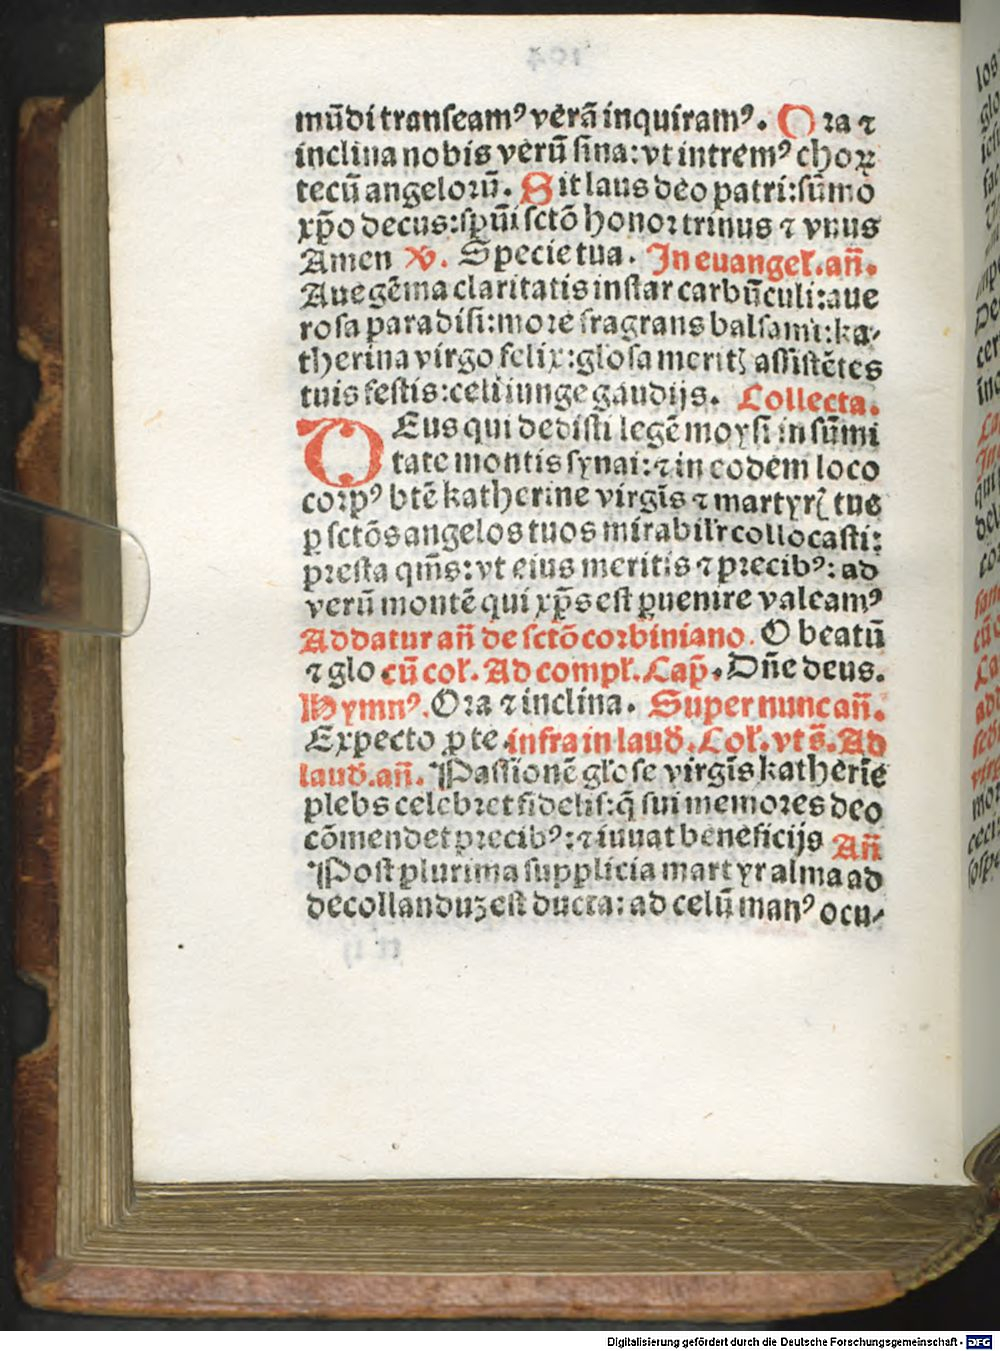 mūdi transeamꝰ verā inquiramꝰ. Ora ⁊
inclina nobis verū sina: vt intremꝰ choꝝ
tecū angelorū. Sit laus deo patri: sūmo
xp̄o decus: spūi sctō honor trinus ⁊ vnus
Amen ℣. Specie tua. In euangeł. añ.
Aue gēma claritatis instar carbūculi: aue
rosa paradisi: more fragrans balsami: ka-
therina virgo felix: glosa meritꝭ assistētes
tuis festis: celi iunge gaudijs. Collecta.
DEus qui dedisti legē moysi in sūmi
tate montis synai: ⁊ in eodem loco
corpꝰ btē katherine virgīs ⁊ martyrꝭ tue
ꝑ sctōs angelos tuos mirabilr̄ collocasti:
presta qm̄s: vt eius meritis ⁊ precibꝰ: ad
verū montē qui xp̄s est ꝑuenire valeamꝰ
Addatur añ de sctō corbiniano. O beatū
⁊ glo cū coł. Ad compł. Cap̄. Dñe deus.
Hymnꝰ. Ora ⁊ inclina. Super nunc añ.
Expecto ꝑ te. infra in laud̄. Coł. vt s̄. Ad
laud̄. añ. Passionē glose virgīs katherīe
plebs celebret fidelis: q̄ sui memores deo
cōmendet precibꝰ: ⁊ iuuat beneficijs Añ
Post plurima supplicia martyr alma ad
decollanduꝫ est ducta: ad celū manꝰ ocu-
Digitalisierung gefördert durch die Deutsche Forschungsgemeinschaft - DFG